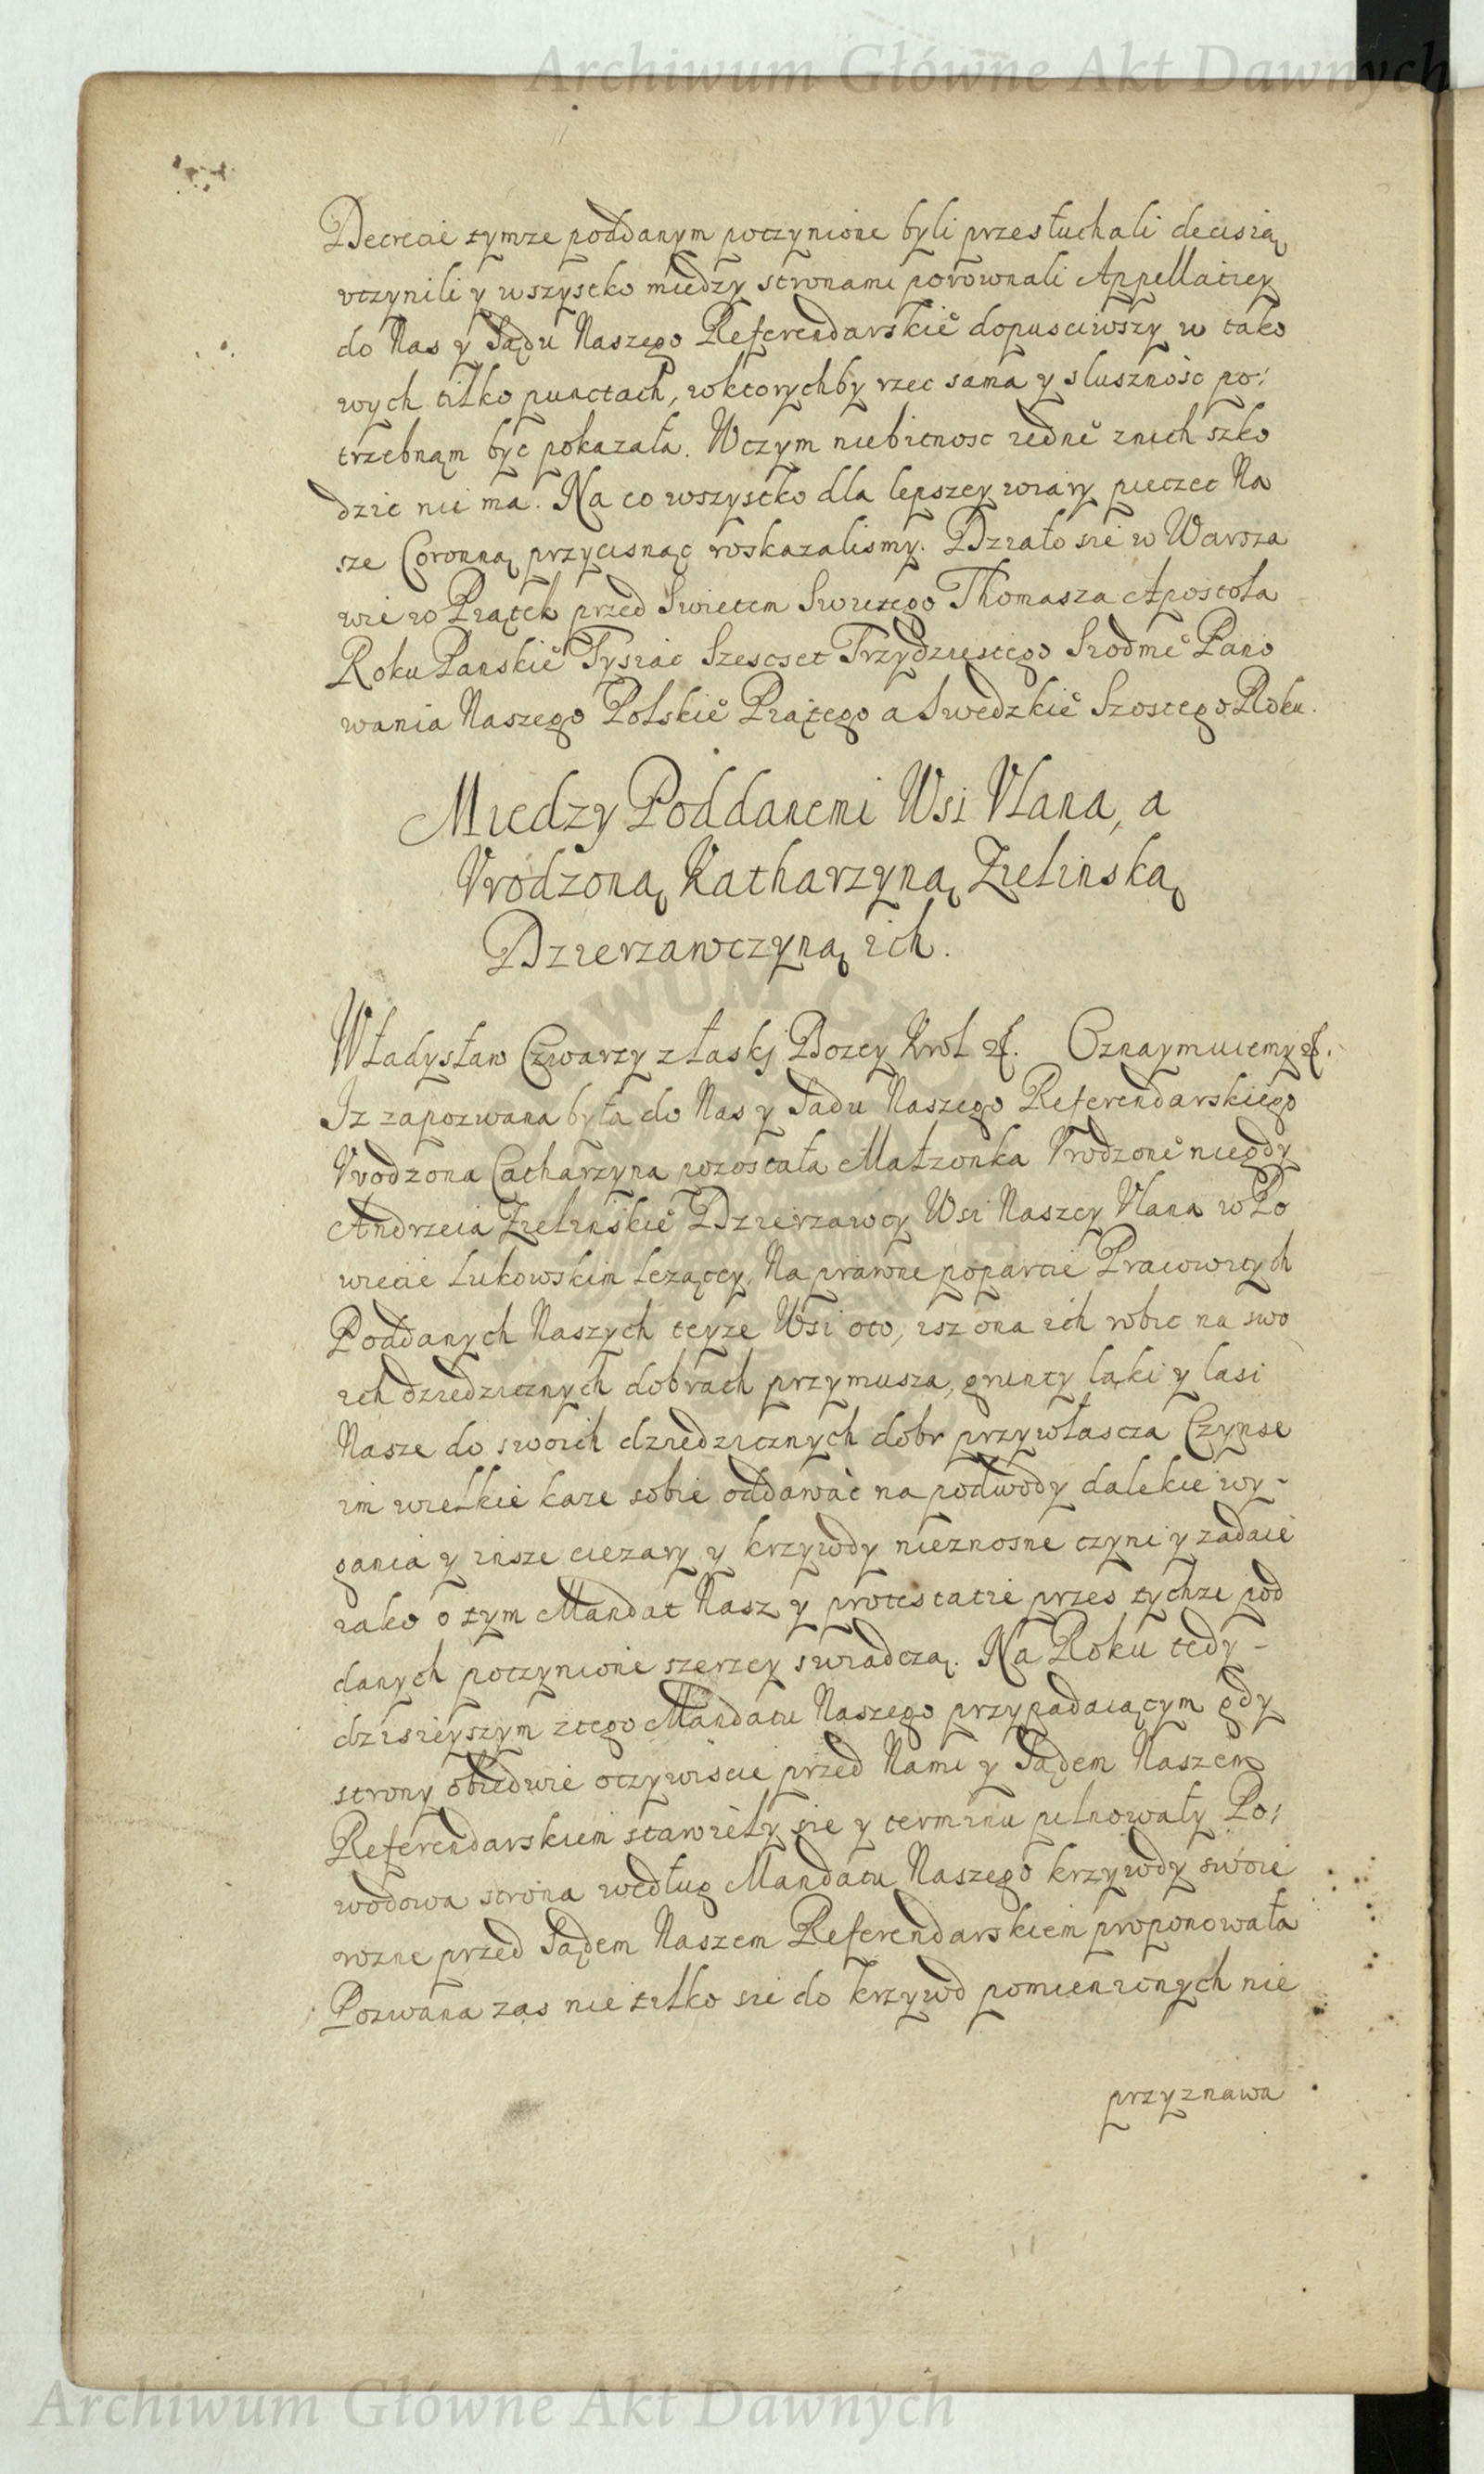 Archiwum Główne Akt Dawnych
Decrecie tymze poddanym poczynione byli przesłuchali decisią
vczynili y wszystko miedzy stronami porownali Appellatiey
do Nas y Sądu Naszego Referendarskieº dopusciwszy w tako
wych tilko punctach, wktorychby rzec sama y slusznośc po:
trzebnąm byc pokazała. Wczym niebitnosc iedneº znich szko
dzic nie ma. Na co wszystko dla lepszey wiary pieczec Na
sze Coronną przycisnąc roskazalismy. Działo sie w Warsza
wie w Piątek przed Swietem Swietego Thomasza Apostoła
Roku Panskieº Tysiac Szescset Trzydziestego Siodmeº Pano
wania Naszego Polskieº Piątego a Swedzkieº Szostego Roku.
Miedzy Poddanemi Wsi Vlana, a
Vrodzoną Katharzyną Zielinską
Dzierzawczyną ich.
Władysław Czwarty z łaskj Bozey Krol etc. Oznaymuiemy etc.
Iz zapozwana była do Nas y Sadu Naszego Referendarskiego
Vrodzona Catharzyna pozostała Małzonka Vrodzoneº niegdy
Andrzeia Zielinskieº Dzierzawcy Wsi Naszey Vlana w Po
wiecie Lukowskim lezącey. Na prawne poparcie Pracowitych
Poddanych Naszych teyze Wsi oto, isz ona ich robic na swo
ich dziedzicznych dobrach przymusza, grunty ląki y lasi
Nasze do swoich dziedzicznych dobr przywłascza Czynse
im wielkie kaze sobie oddawać na podwody dalekie wy-
gania y insze ciezary y krzywdy nieznosne czyni y zadaie
iako o tym Mandat Nasz y protestatie przes tychze pod
danych poczynione szerzey swiadczą. Na Roku tedy-
dzisieyszym ztego Mandatu Naszego przypadaiącym gdy
strony obiedwie oczywiscie przed Nami y Sądem Naszem
Referendarskiem stawieły sie y terminu pilnowały Po:
wodowa strona według Mandatu Naszego krzywdy swoie
rozne przed Sądem Naszem Referendarskiem proponowała
Pozwana zas nie tilko sie do krzywd pomienionych nie
przyznawa
Archiwum Główne Akt Dawnych